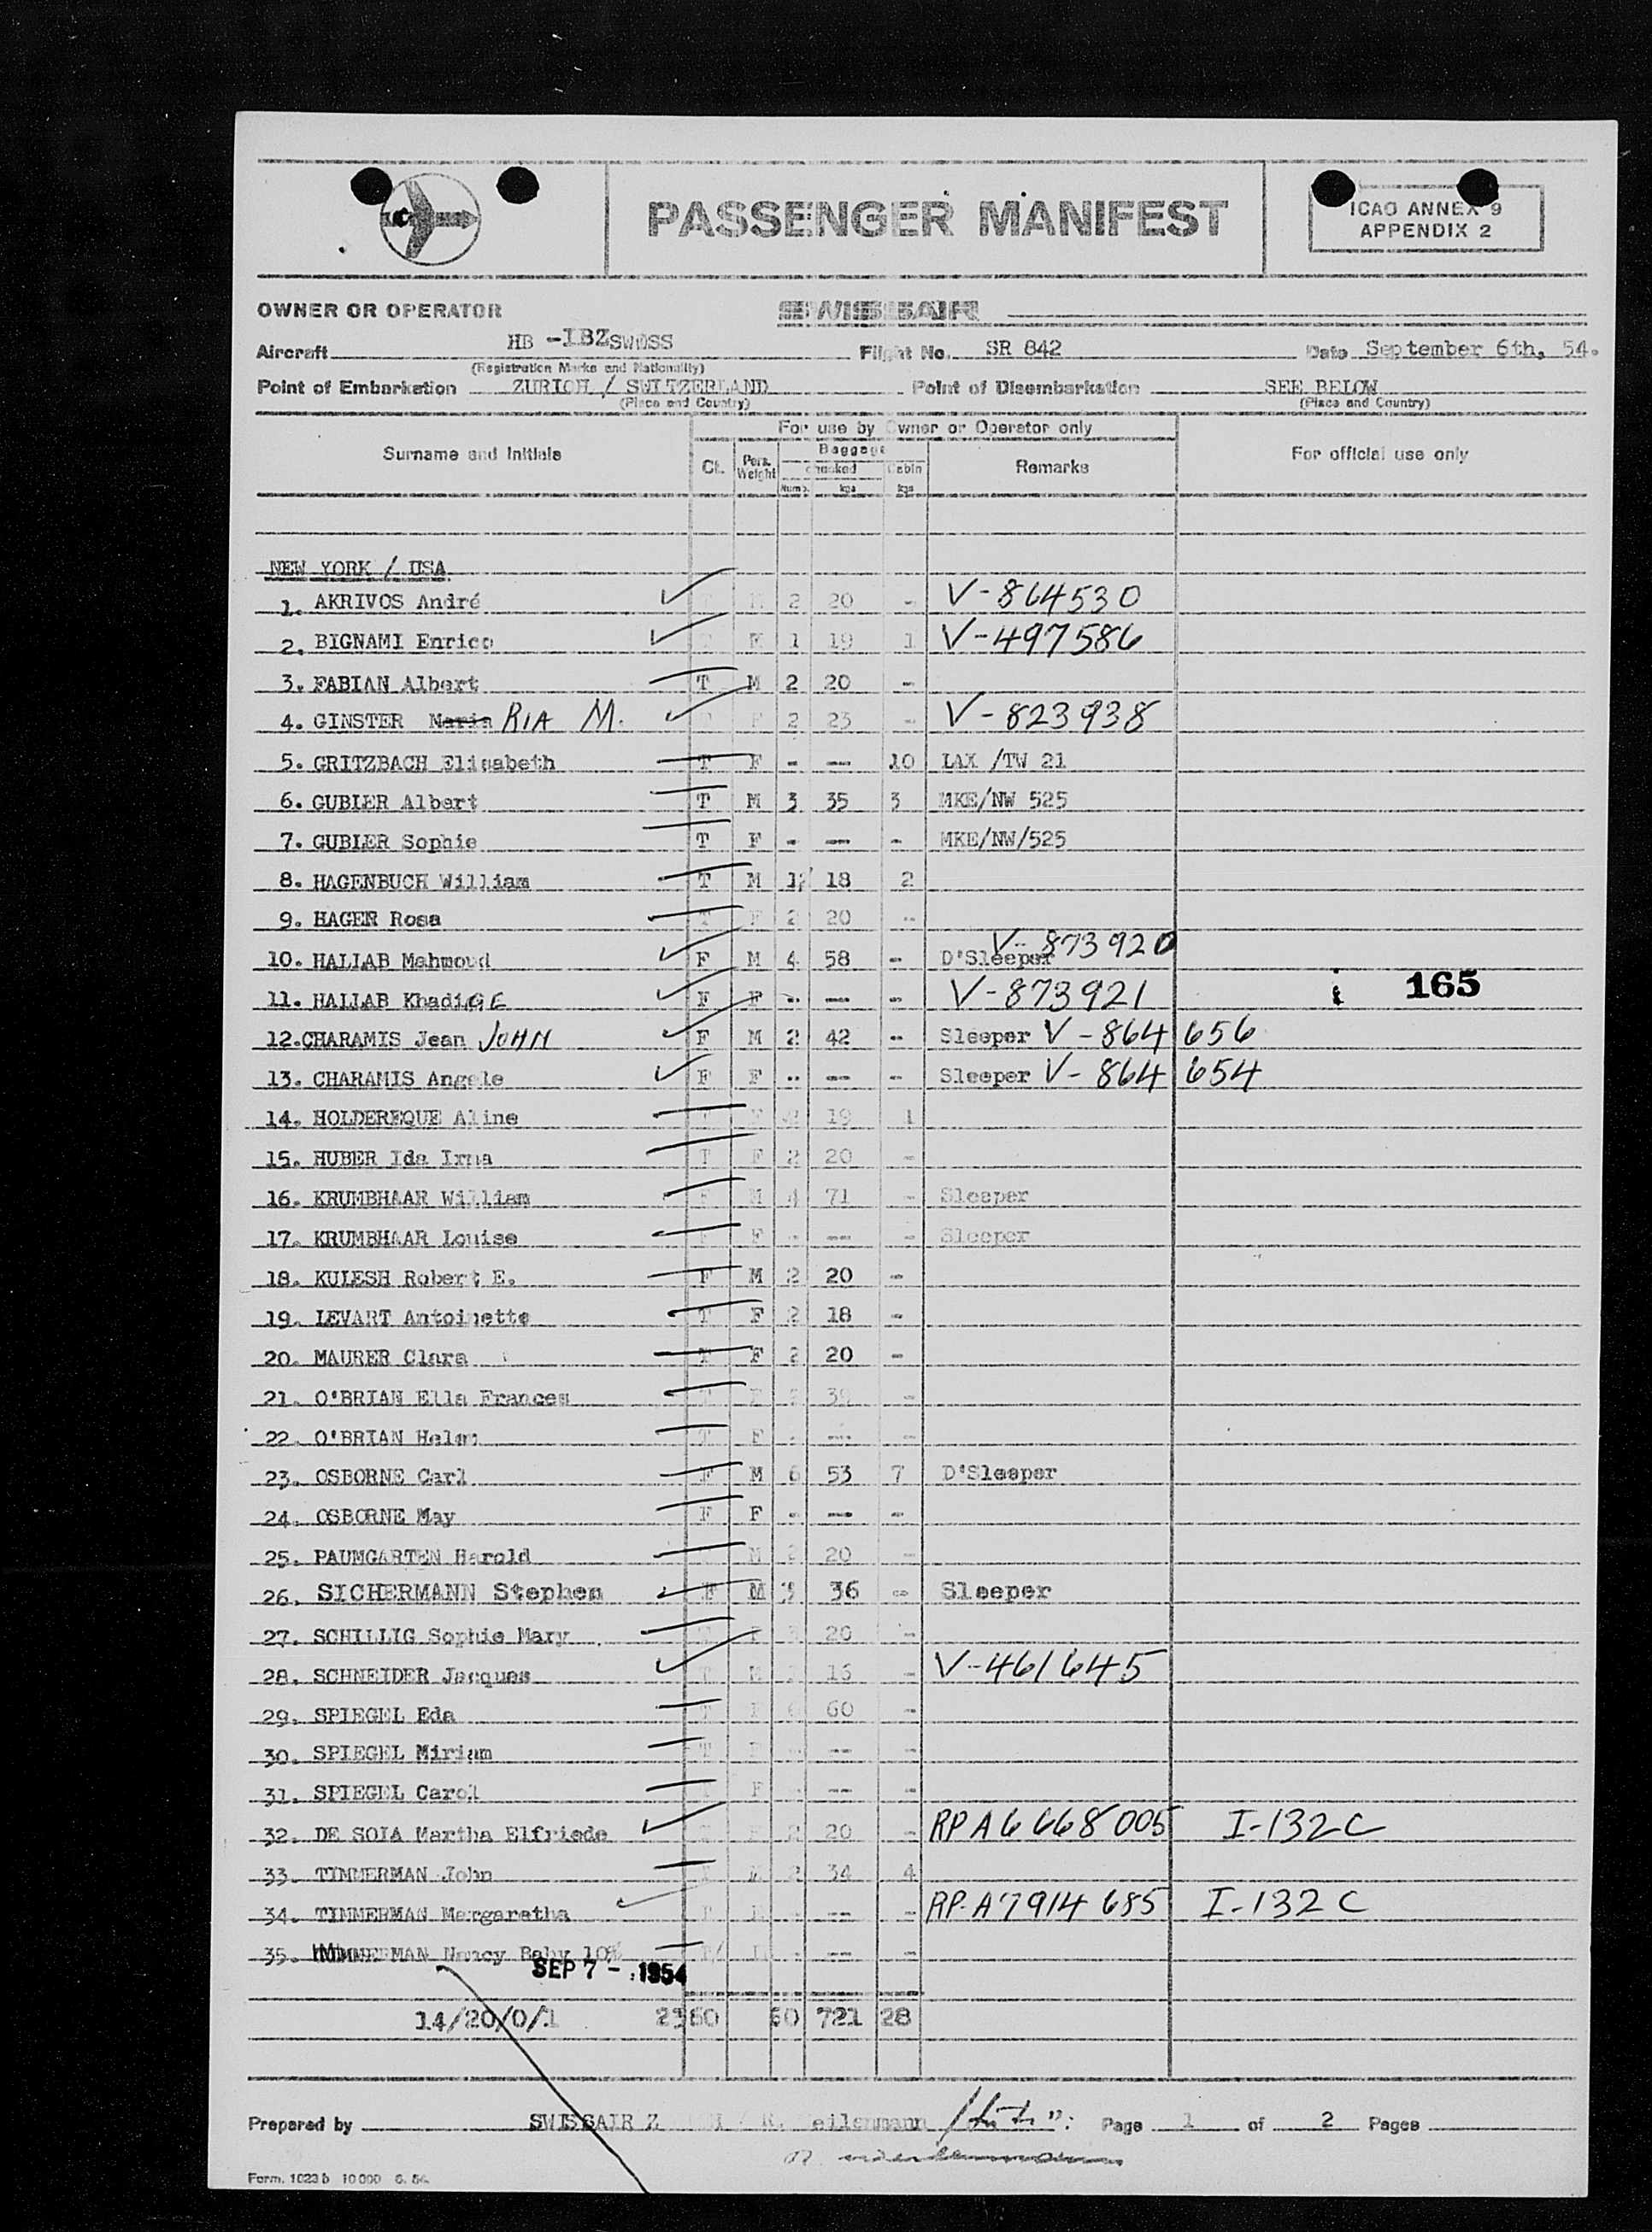 PASSENGER MANIFEST
ICAO ANNEX 9
APPENDIX 2
OWNER OR OPERATOR SWISSAIR
Aircraft HB -IBZ SWISS Flight No. SR 842 Date September 6th, 54.
(Registration Marks and Nationality)
Point of Embarkation ZURICH / SWITZERLAND Point of Disembarkation SEE BELOW
(Place and Country) (Place and Country)
For use by Owner or Operator only
Surname and Initials Cl. Pers. Weight Baggage checked Numb. kgs Cabin kgs Remarks For official use only
NEW YORK / USA
1. AKRIVOS André 2 20 - V-864530
2. BIGNAMI Enrico 1 19 1 V-497586
3. FABIAN Albert T M 2 20 -
4. GINSTER Maria RIA M. F 2 23 - V-823938
5. GRITZBACH Elisabeth T F - -- 10 LAX /TW 21
6. GUBLER Albert T M 3 35 3 MKE/NW 525
7. GUBLER Sophie T F - -- - MKE/NW/525
8. HAGENBUCH William T M 1 18 2
9. HAGER Rosa T F 2 20 -
10. HALLAB Mahmoud F M 4 58 - D'Sleeper V-873920
11. HALLAB KhadiGE F F - -- - V-873921 165
12.CHARAMIS Jean JOHN F M 2 42 - Sleeper V-864656
13. CHARAMIS Angele F F - -- - Sleeper V-864654
14. HOLDEREQUE Aline 19 1
15. HUBER Ida Irma T F 2 20 -
16. KRUMBHAAR William F M 4 71 - Sleeper
17. KRUMBHAAR Louise F - -- - Sleeper
18. KULESH Robert E. F M 2 20 -
19. LEVART Antoinette T F 2 18 -
20. MAURER Clara T F 2 20 -
21. O'BRIAN Ella Frances -
22. O'BRIAN Helen T F - -- -
23. OSBORNE Carl F M 6 53 7 D'Sleeper
24. OSBORNE May F F - -- -
25. PAUMGARTEN Harold M 2 20 -
26. SICHERMANN Stephen F M 3 36 - Sleeper
27. SCHILLIG Sophie Mary F 20 -
28. SCHNEIDER Jacques T M 16 - V-461645
29. SPIEGEL Eda T F 6 60 -
30. SPIEGEL Miriam T - -- -
31. SPIEGEL Carol F - -- -
32. DE SOLA Martha Elfriede 2 20 - RP A6668005 I-132C
33. TIMMERMAN John T M 2 34 4
34. TIMMERMAN Margaretha - -- - RP-A7914685 I-132C
35. TIMMERMAN Nancy Baby 10% - -- -
SEP 7 - 1954
14/20/0/1 2360 60 721 28
Prepared by SWISSAIR Page 1 of 2 Pages
Form. 1023 b 10 000 6. 54.